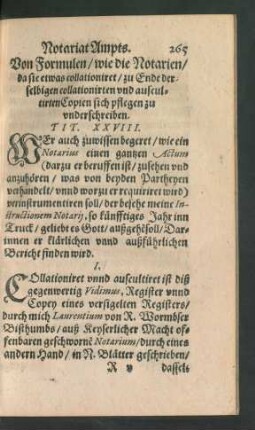 Notariat Ampts. 265
Von Formulen / wie die Notarien /
da sie etwas collationiret / zu Ende der-
selbigen collationirten vnd auscul-
tirten Copien sich pflegen zu
vnderschreiben.
TIT. XXVIII.
WEr auch zuwissen begeret / wie ein
Notarius einen gantzen Actum
(darzu er beruffen ist / zusehen vnd
anzuhören / was von beyden Partheyen
verhandelt / vnnd worzu er requiriret wird)
verinstrumentiren soll / der besehe meine In-
structionem Notarij, so künfftiges Jahr inn
Truck / geliebt es Gott / außgehē soll / Dar-
innen er klärlichen vnnd außführlichen
Bericht finden wird.
I.
COllationiret vnnd auscultiret ist diß
gegenwertig Vidimus, Register vnnd
Copey eines versigelten Registers /
durch mich Laurentium von R. Wormbser
Bisthumbs / auß Keyserlicher Macht of-
fenbaren geschwornē Notarium / durch eines
andern Hand / in N. Blätter geschrieben /
R v dasselt